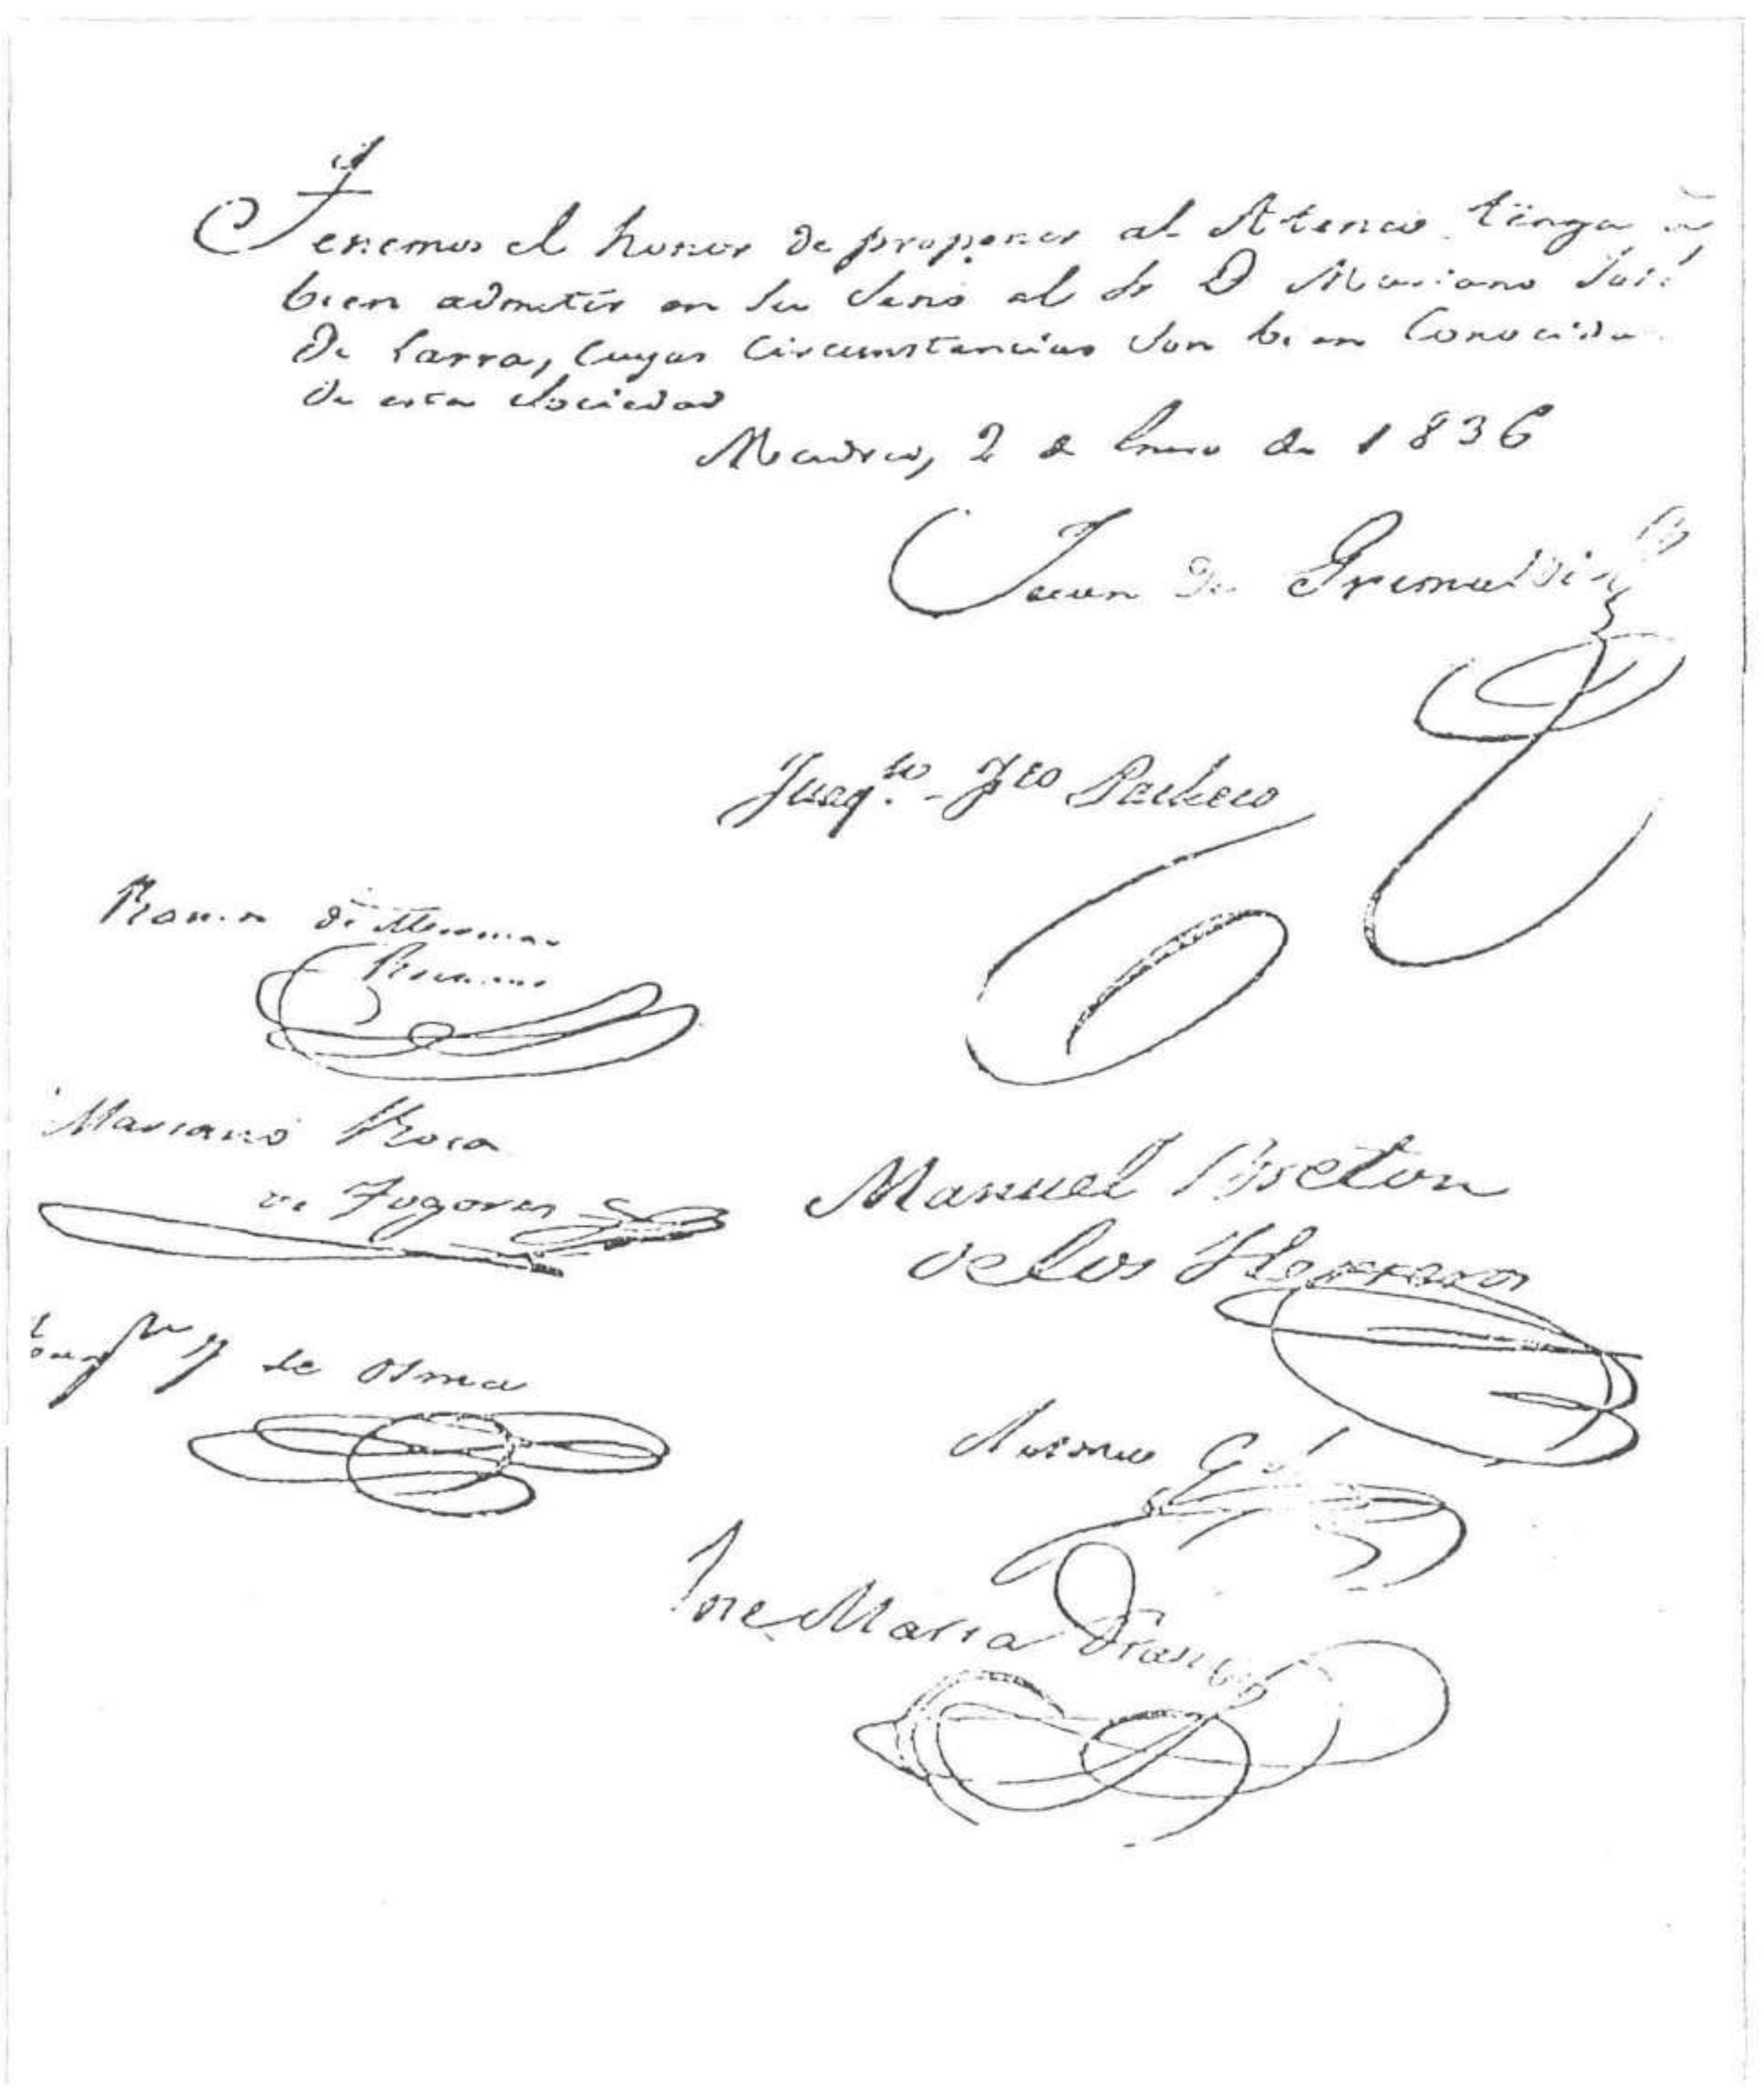 Tenemos el honor de proponer al Ateneo tenga a
bien admitir en su seno al Sr D Mariano José
de Larra, cuyas circunstancias son bien conocidas
de esta Sociedad
Madrid, 2 de Enero de 1836
Juan de Grimaldi
Juaqn - Fco Pacheco
Ramon de Mesonero
Romano
Mariano Roca
de Togores
de Osma
Manuel Breton
de los Herreros
Antonio
Jose Maria